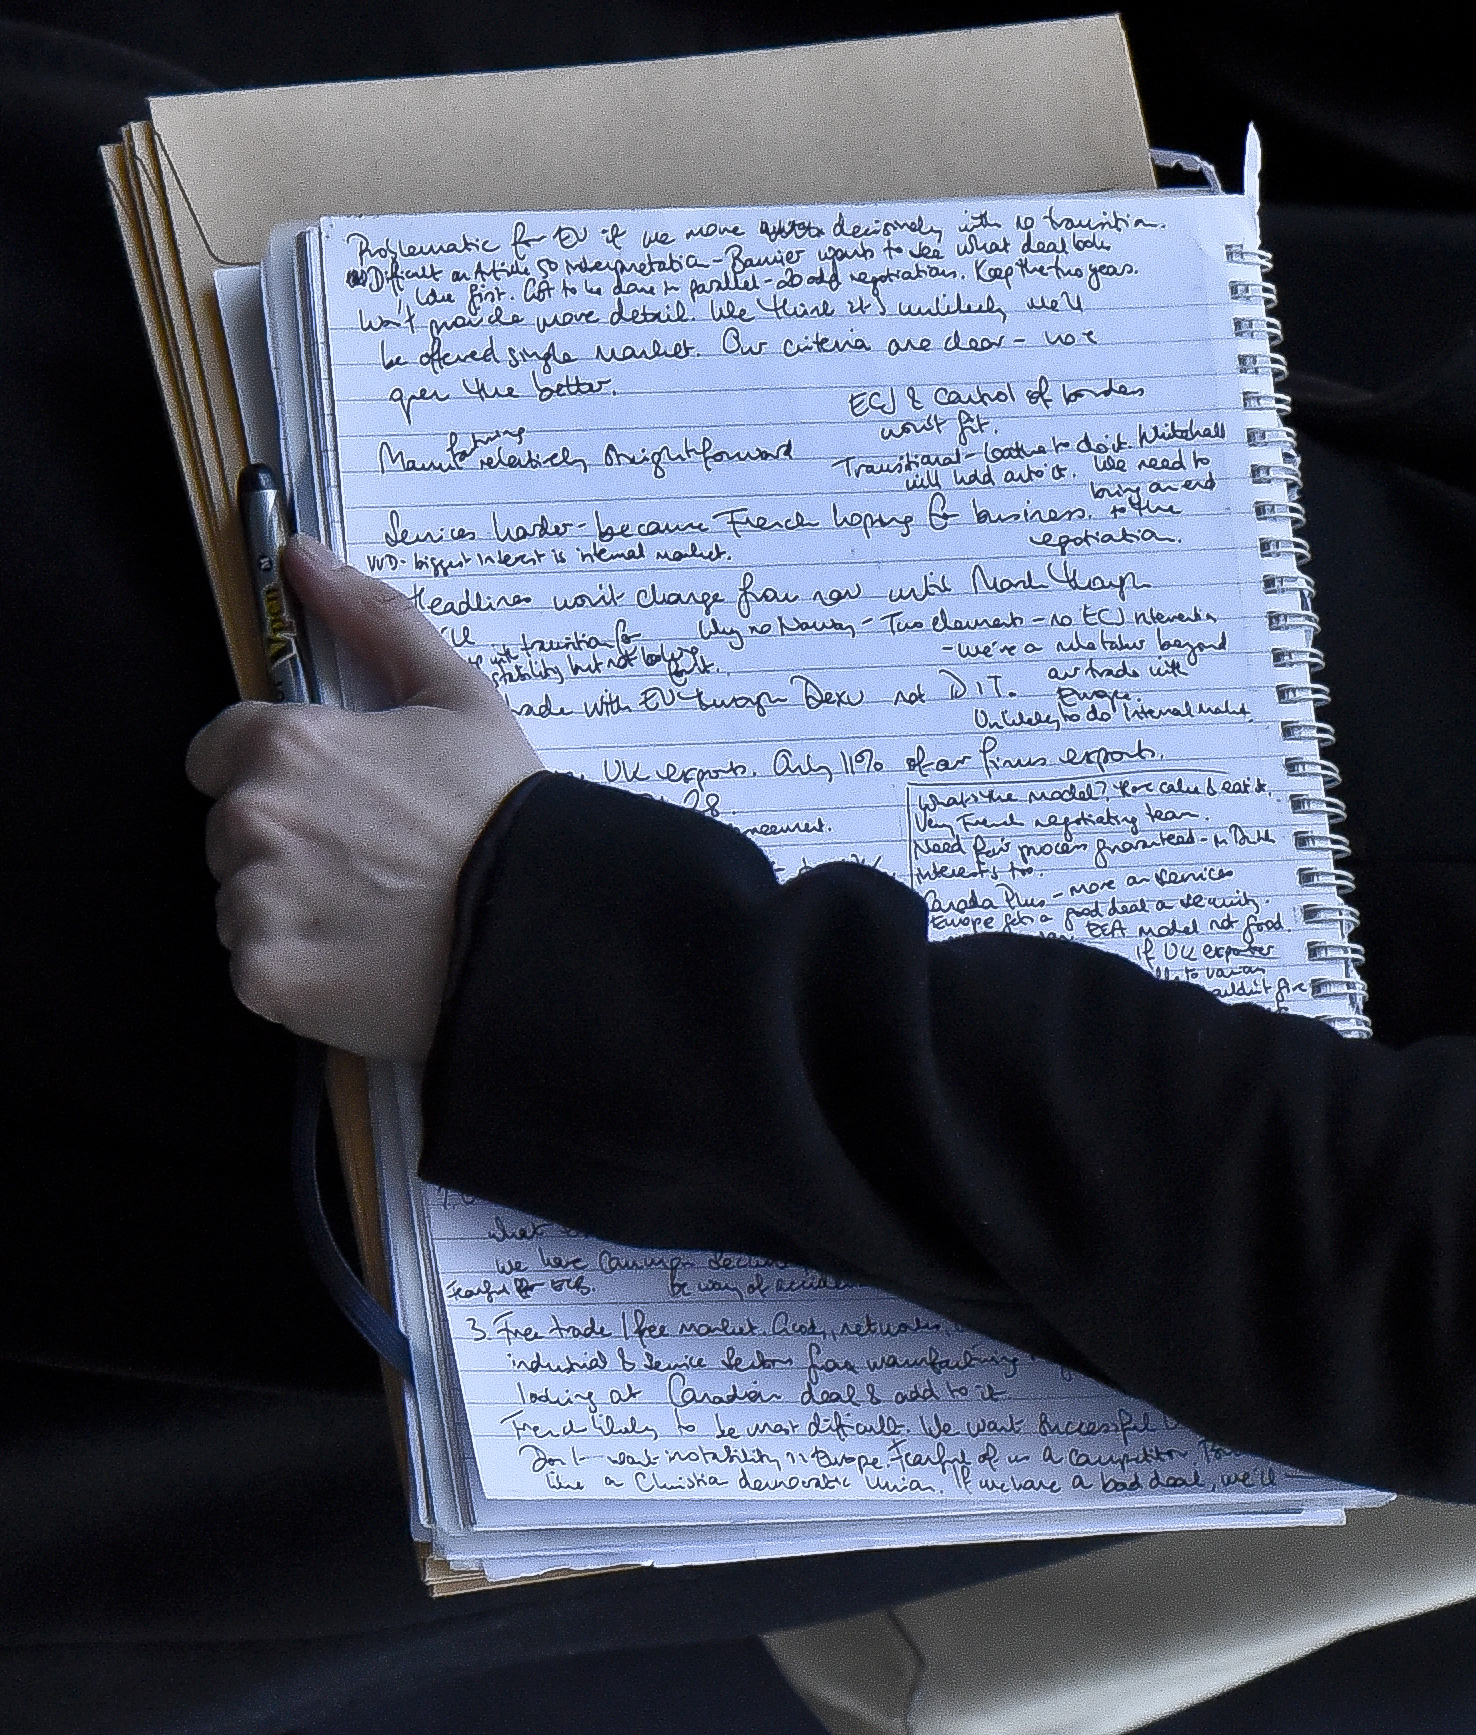 Problematic for EU if we move decisively with no transition.
Difficult on Article 50 interpretation - Barnier wants to see what deal looks
like first. Got to be done in parallel - 20 odd negotiations. Keep the two years.
Won't provide more detail. We think it's unlikely we'll
be offered single market. Our criteria are clear - more
open the better.
ECJ & Control of borders
won't fit.
Manufacturing relatively straightforward
Transitional - loathe to do it. Whitehall
will hold onto it. We need to
bring an end
to the
negotiation.
Services harder - because French hoping for business.
VVD - biggest interest is internal market.
Headlines won't change from now until March though
transition for
stability but not
Why no Norway - Two elements - no ECJ intervention
- We're a
beyond
our trade with
Europe.
Unlikely to do internal market.
trade with EU through Dexu not DIT.
UK exports. Only 11% of our firms exports.
28.
What's the model? Have cake & eat it.
Very French negotiating team.
Need fair process guaranteed - in Dutch
interests too.
Canada Plus - more on services
Europe gets a good deal on security.
EEA model not good.
If UK exporter
to
couldn't give
what
we have Common
Fearful
be way of
3. Free trade / free market. Goods, networks,
industrial & Service Sectors from manufacturing
looking at Canadian deal & add to it
French likely to be most difficult. We want successful
Don't want instability in Europe. Fearful of us a competitor.
like a Christian democratic Union. If we have a bad deal, we'll
Vpen